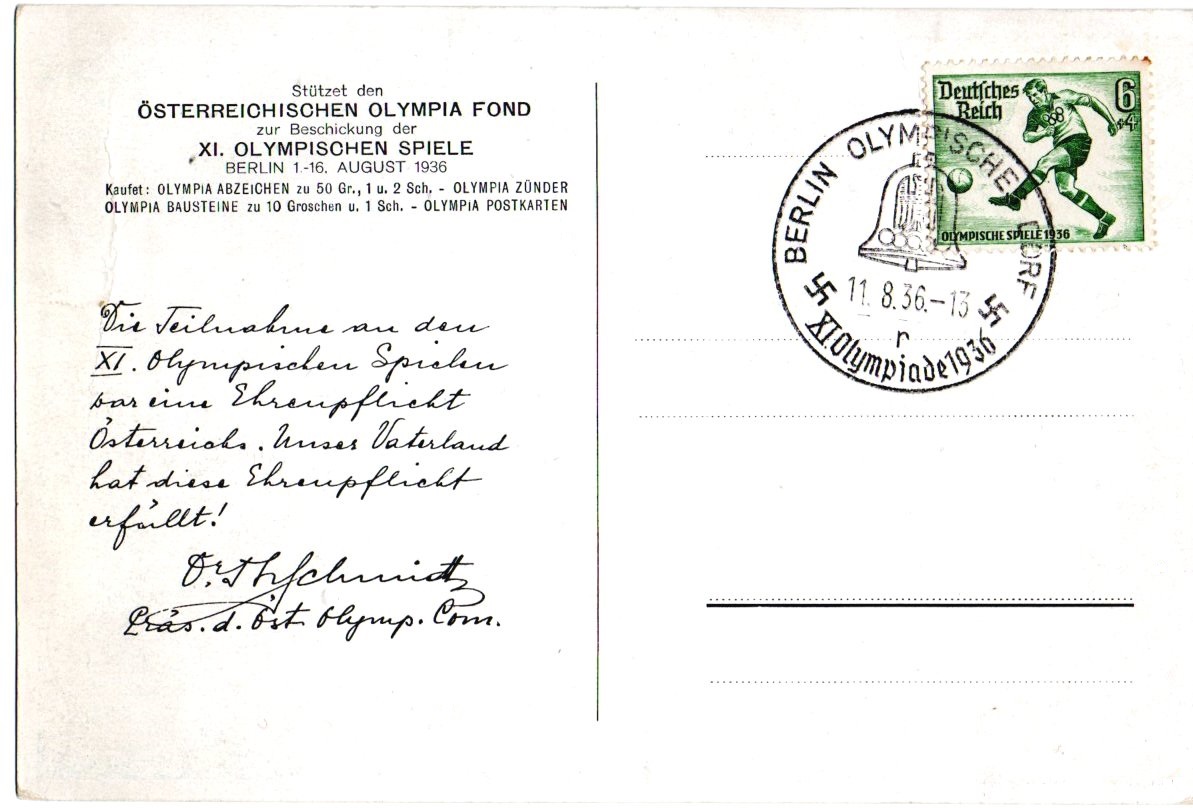 Stützet den
ÖSTERREICHISCHEN OLYMPIA FOND
zur Beschickung der
XI. OLYMPISCHEN SPIELE
BERLIN 1.-16. AUGUST 1936
Kaufet: OLYMPIA ABZEICHEN zu 50 Gr., 1 u. 2 Sch. - OLYMPIA ZÜNDER
OLYMPIA BAUSTEINE zu 10 Groschen u. 1 Sch. - OLYMPIA POSTKARTEN
Die Teilnahme an den
XI. Olympischen Spielen
war eine Ehrenpflicht
Österreichs. Unser Vaterland
hat diese Ehrenpflicht
erfüllt!
Dr. Th Schmidt
Präs. d. Öst. Olymp. Com.
Deutsches
Reich
6
+4
OLYMPISCHE SPIELE 1936
BERLIN OLYMPISCHES DORF
11.8.36.-13
r
XI. Olympiade 1936